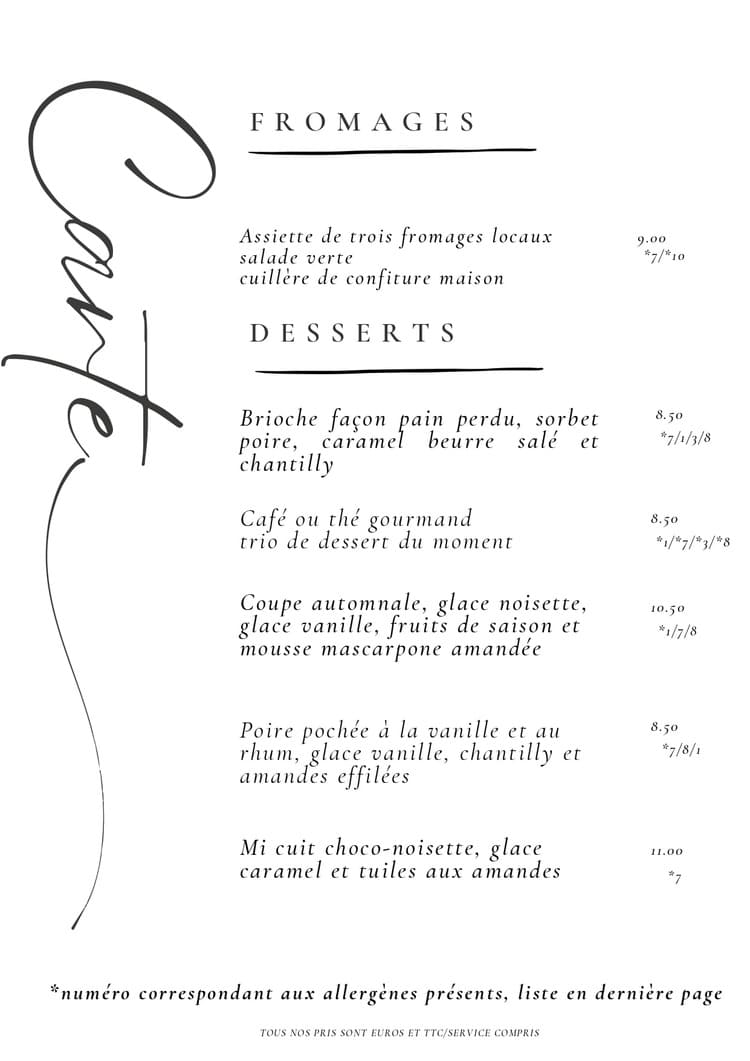 Courte
FROMAGES
Assiette de trois fromages locaux
salade verte
cuillère de confiture maison
9.00
*7/*10
DESSERTS
Brioche façon pain perdu, sorbet
poire, caramel beurre salé et
chantilly
8.50
*7/1/3/8
Café ou thé gourmand
trio de dessert du moment
8.50
*1/*7/*3/*8
Coupe automnale, glace noisette,
glace vanille, fruits de saison et
mousse mascarpone amandée
10.50
*1/7/8
Poire pochée à la vanille et au
rhum, glace vanille, chantilly et
amandes effilées
8.50
*7/8/1
Mi cuit choco-noisette, glace
caramel et tuiles aux amandes
11.00
*7
*numéro correspondant aux allergènes présents, liste en dernière page
TOUS NOS PRIS SONT EUROS ET TTC/SERVICE COMPRIS